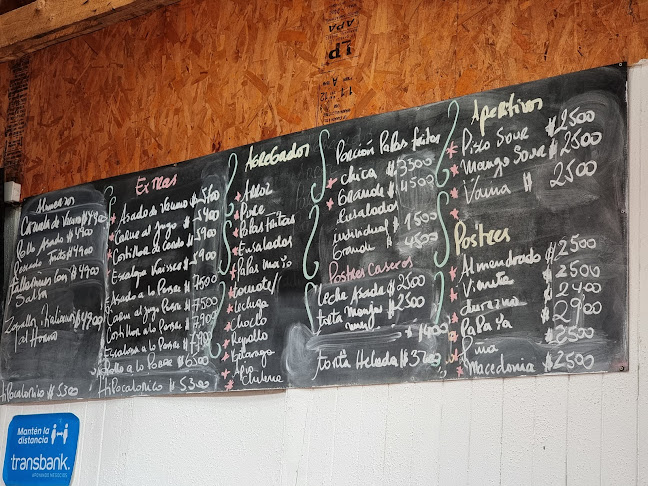 LP
APA
Almuerzo
Cazuela de Vacuno $4900
Pollo Asado $4900
Pescado Frito $4900
tallarines con $4900
Salsa
Zapallos Italianos $4900
al Horno
Hipocalorico $5300
Extras
Asado de Vacuno $5900
Carne al Jugo $5900
Cortillon de Cerdo $5900
Escalopa Kaiser $5900
Asado a lo Pobre $7500
Carne al Jugo Pobre $7500
Cortillon a lo Pobre
Escalopa a lo Pobre
Pollo a lo Pobre $6500
Hipocalorico $5300
Agregados
Arroz
Pure
Papas fritas
Ensaladas
Papas mayo
tomate
Lechuga
Choclo
Repollo
betarraga
Apio
Chilena
Porción Papas fritas
Chica $3500
Grande $4500
Ensaladas
individual 1500
Grande $4500
Postres Caseros
leche Asada $2500
torta Manjar $2500
torta Helada $3700
Aperitivos
Pisco Sour $2500
Mango Sour $2500
Vaina $2500
Postres
Almendrado $2500
Vienesa $2500
durazno $2400
Papaya $2900
Piña
Macedonia $2500
Mantén la
distancia
transbank.